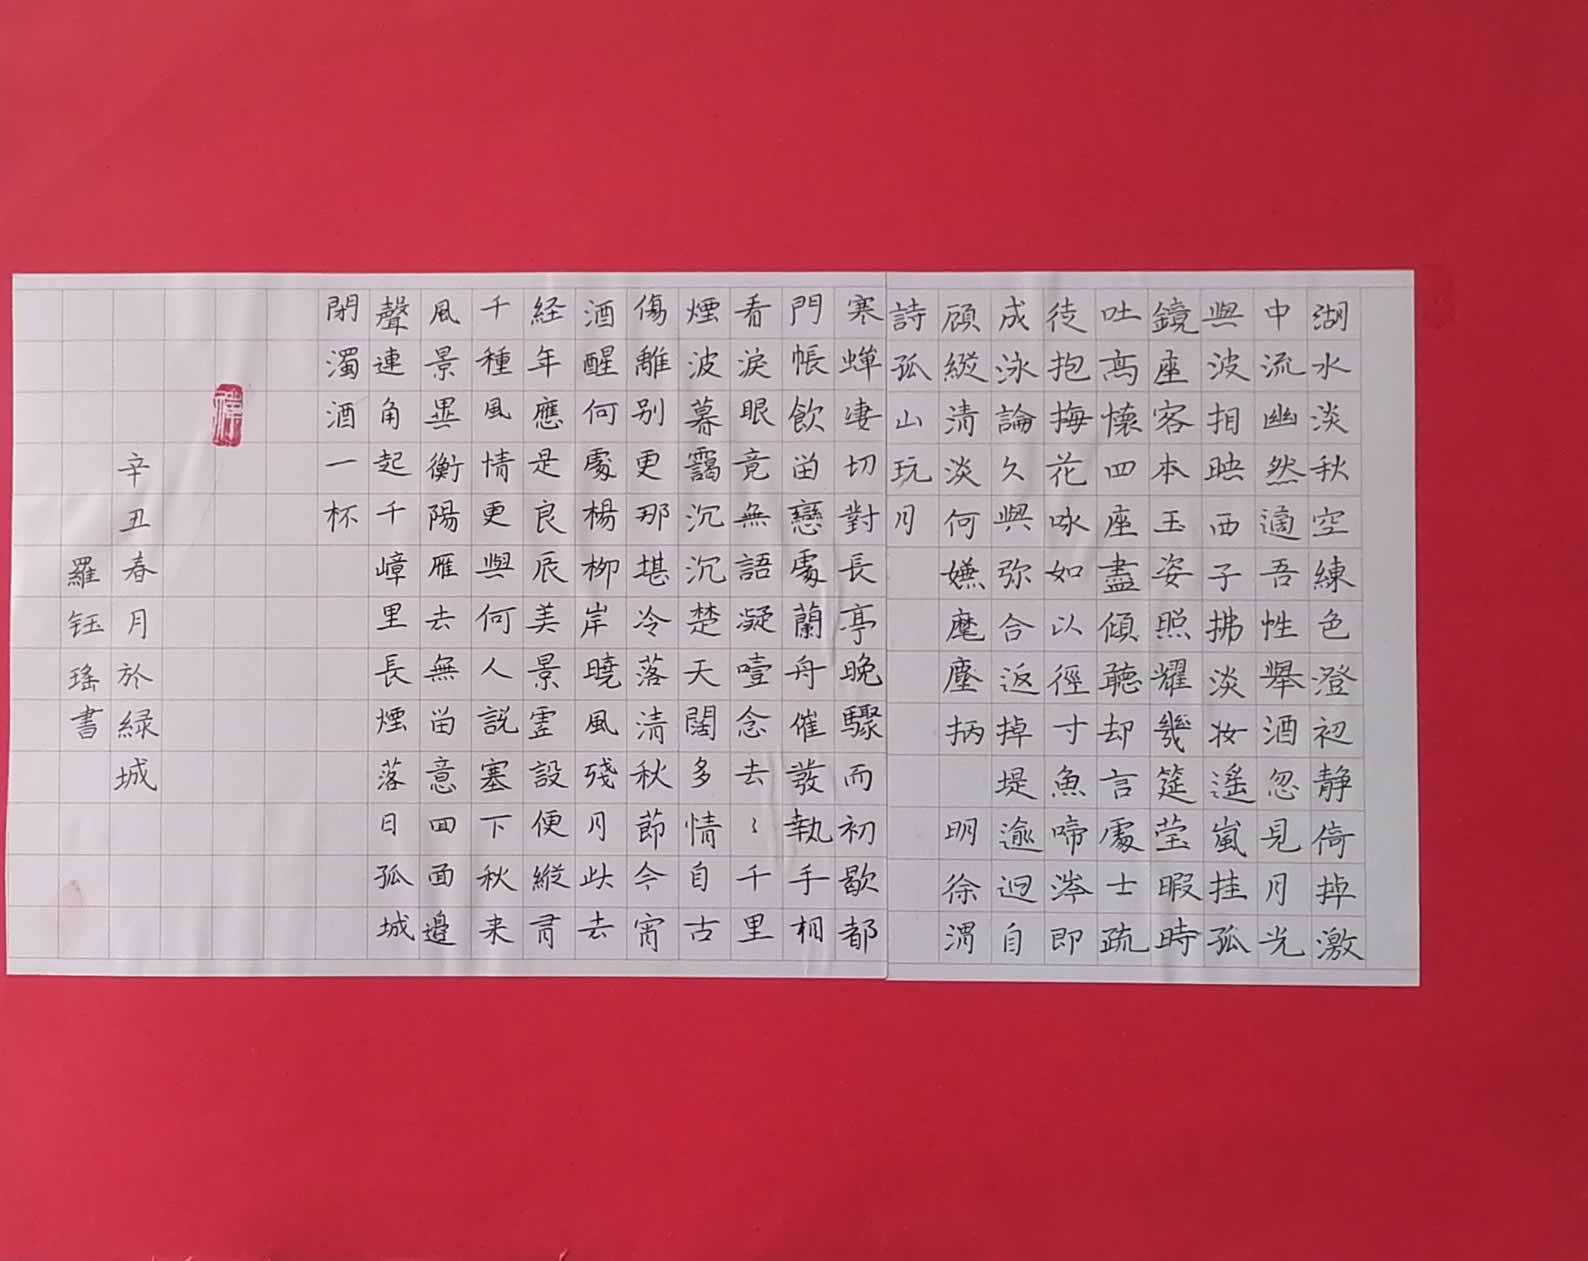 湖水淡秋空練色澄初静倚掉激
中流幽然適吾性舉酒忽見月光
與波相映西子拂淡妆遥嵐挂孤
鏡座客本玉姿照耀幾筵莹暇時
吐高懷四座盡傾聽却言處士疏
徒抱梅花咏如以徑寸魚啼涔即
成泳論久與弥合返掉堤逾迴自
顾縱清淡何嫌麾麈柄 明徐渭
詩孤山玩月
寒蟬凄切對長亭晚驟雨初歇都
門帳飲畄戀處蘭舟催發執手相
看淚眼竟無語凝噎念去〻千里
煙波暮靄沉沉楚天闊多情自古
傷離别更那堪冷落清秋節今宵
酒醒何處楊柳岸曉風殘月此去
経年應是良辰美景虚設便縱有
千種風情更與何人説塞下秋来
風景異衡陽雁去無畄意四面邊
聲連角起千嶂里長煙落日孤城
閉濁酒一杯
辛丑春月於緑城
羅钰瑤書